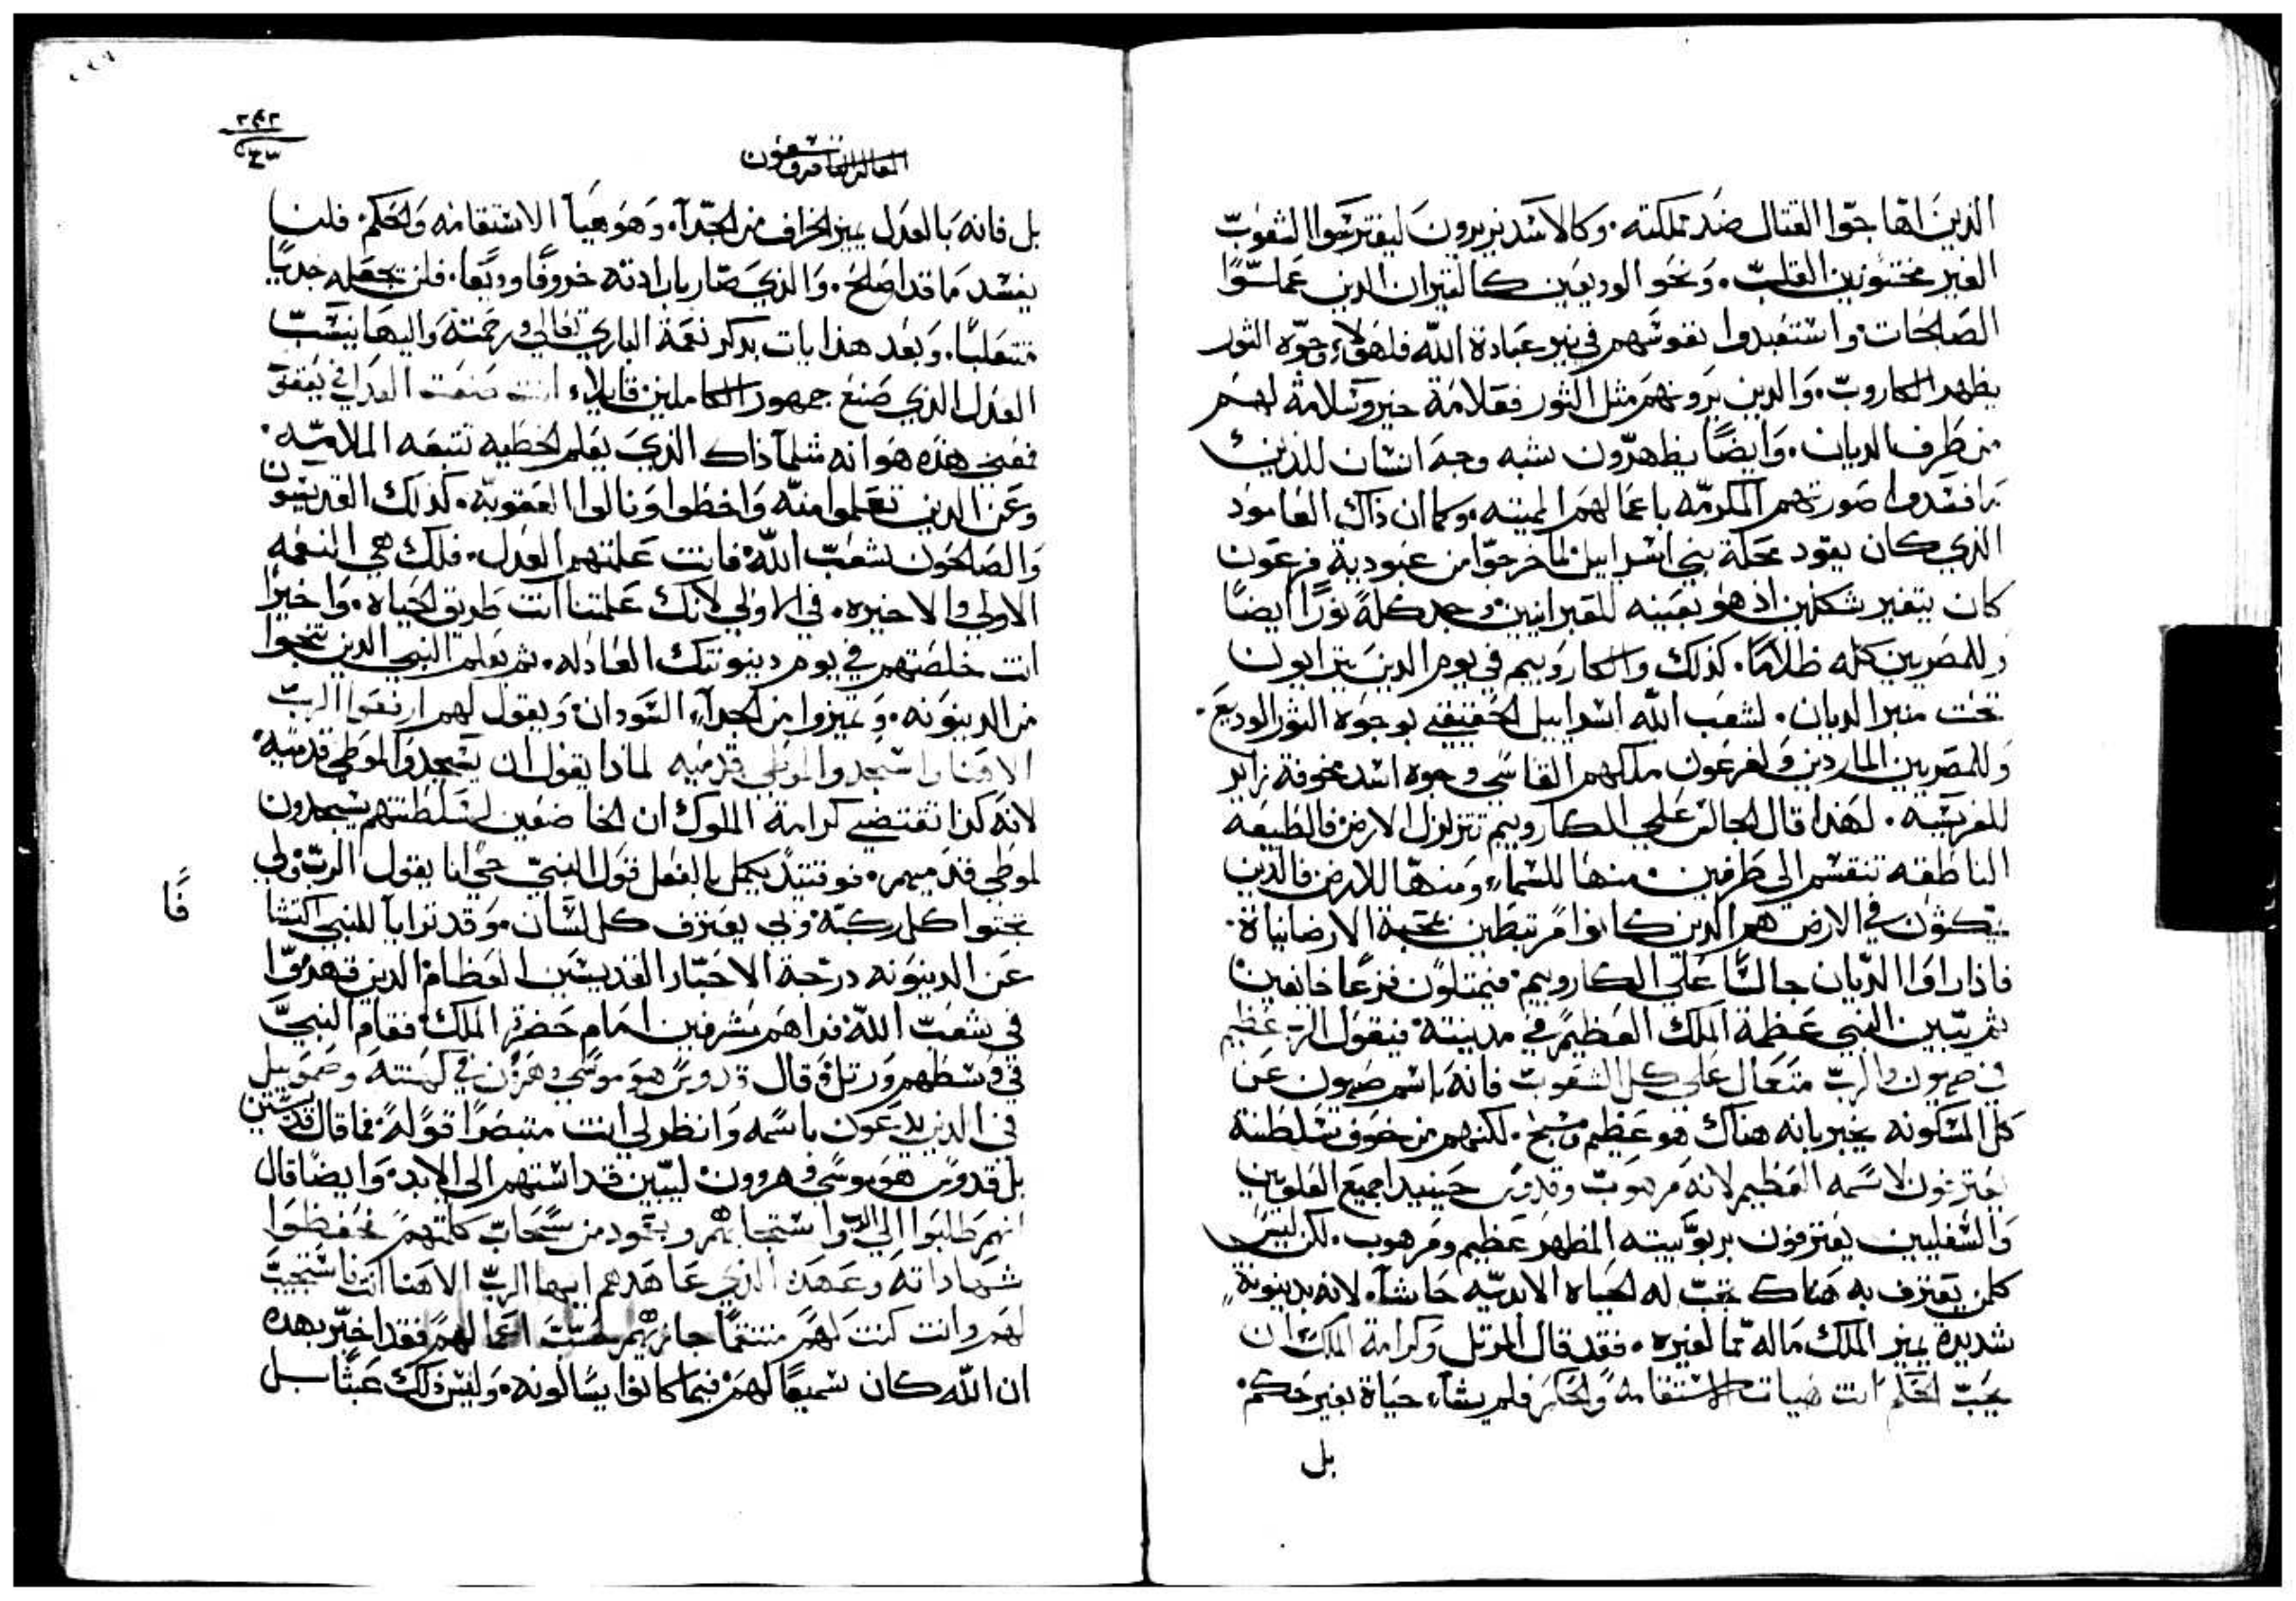 الذين اهاجوا القتال ضد مملكته. وكالاسد يزيرون ليفترسوا الشعوب
الغير مختونين القلب. ونحو الوديعين كالثيران الذين عملوا
الصالحات واستعبدوا نفوسهم في نير عبادة الله فلهولاء وجوه الثور
يظهر الكاروب. والذين يرونهم مثل الثور فعلامة خير وسلامة لهم
من طرف الديان. وايضًا يظهرون بشبه وجه انسان للذين
ما فقدوا صورتهم المكرمه باعمالهم الميته. وكما ان ذاك العامود
الذي كان يقود محلة بني اسراييل لما خرجوا من عبودية فرعون
كان يتغير شكلين اذ هو بعينه للعبرانيين وجد كلهً نورًا ايضًا
وللمصريين كله ظلامًا. كذلك والكاروبيم في يوم الدين يترايون
تحت منبر الديان. لشعب الله اسراييل الحقيقي بوجوه الثور الوديع.
وللمصريين الماردين ولفرعون ملكهم القاسي وجوه اسد مخوفة زاير
للفريسه. لهذا قال الجالس علي الكاروبيم تتزلزل الارض فالطبيعه
الناطقه تنقسم الي طرفين. منها للسماء ومنها للارض فالذين
يتكثون في الارض هم الذين كانوا مرتبطين بمحبة الارضانياة.
فاذا راوا الديان جالسًا علي الكاروبيم. فيمتلون فزعًا خايفين
ثم يبين النبي عظمة الملك العظيم في مدينته فيقول الرب عظيم
في صهيون والرب متعال علي كل الشعوب فانه باسم صهيون عن
كل المسكونه يخبر بانه هناك هو عظيم ومسبح. لكنهم من خوف سلطنته
يعترفون لاسمه العظيم لانه مرهوب وقدوس حينيد اجميع العلويين
والسفليين يعترفون بربوبيته المظهر عظيم ومرهوب. لكن ليس
كلمن يعترف به هناك تجب له الحياه الابديه حاشا. لانه بدينونة
شديدة يميز الملك ماله مما لغيره. فقد قال المرتل وكرامة الملك ان
يحب الحكم انت هيات الاستقامه والحكم فلم يشاء حياة بغير حكم.
بل
بل فانه بالعدل يميز الخراف من الجدآ. وهو هيا الاستقامه والحكم. فلن
يفسد ما قد اصلح. والذي صار بارادته خروفًا وديعًا. فلن يجعله جديًا
متقلبًا. وبعد هذا يات بذكر نعمة الباري تعالي ورحمته واليها ينسب
العدل الذي صنع جمهور الكاملين قايلاء انت صنعت العدل في يعقوب
فعني هذه هو انه مثلما ذاك الذي يعلم الخطيه تتبعه الملاميه.
وعن الذين تعلموا منه واخطوا ونالوا العقوبه. كذلك القديسون
والصالحون بشعب الله فانت علمتهم العدل. فلك هي النعمه
الاولي والاخيره. في الاولي لانك علمتنا انت طريق الحياه. واخيرًا
انت خلصتهم في يوم دينونتك العادله. ثم يعلم النبي الذين نجوا
من الدينونه. وتميزوا من الجدآء السودان ويقول لهم ارفعوا الرب
الاهنا واسجدوا لموطي قدميه لماذا يقول ان يسجدوا لموطي قدميه.
لانه كذا تقتضي كرامة الملوك ان الخاضعين لسلطنتهم يسجدون
لموطي قدميهم. فوقتيذ يكمل بالفعل قول النبي حي انا يقول الرب ولي
تجثوا كل ركبة ولي يعترف كل لسان. وقد ترايا للنبي اكتشا
فًا
عن الدينونه درجة الاحبار القديسين العظام الذين تقدموا
في شعب الله فراهم مشرفين امام حضرة الملك. فقام النبي
في وسطهم ورتل وقال قدوس هو موسي وهرون في كهنته وصمويل
في الذين يدعون باسمه وانظر لي انت متبصرًا قوله. فما قال قديسين
بل قدوس هو موسي وهرون ليبين قداستهم الي الابد. وايضًا قال
انهم طلبوا الي الرب واستجابهم وبعمود من سحاب كلمهم فحفظوا
شهاداته وعهده الذي عاهدهم ايها الرب الاهنا انت استجبت
لهم وانت كنت لهم منتقمًا جازيهم بحسب اعمالهم فقد اخبر بهذه
ان الله كان سميعًا لهم فيما كانوا يسالونه. وليس ذلك عبثًا بل